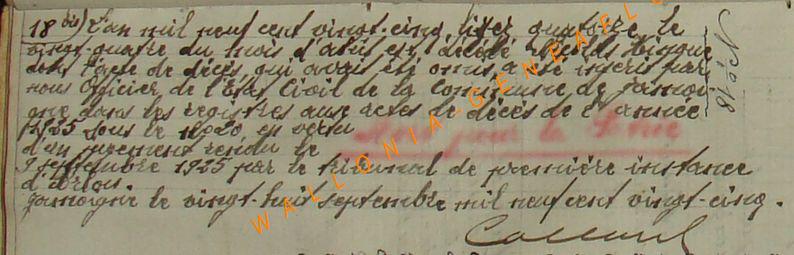 18 bis) L'an mil neuf cent vingt-cinq lisez quatorze le
vingt-quatre du mois d'août est décédé
dont l'acte de décès, qui avait été omis, a été inscrit par
nous Officier de l'Etat Civil de la Commune de Jamoi-
gne dans les registres aux actes de décès de l'année
1925 sous le n° 20, en vertu
d'un jugement rendu le
9 septembre 1925 par le tribunal de première instance
d'Arlon.
Jamoigne le vingt-huit septembre mil neuf cent vingt-cinq.
Mort pour la
N° 18
WALLONIA-GENEAL